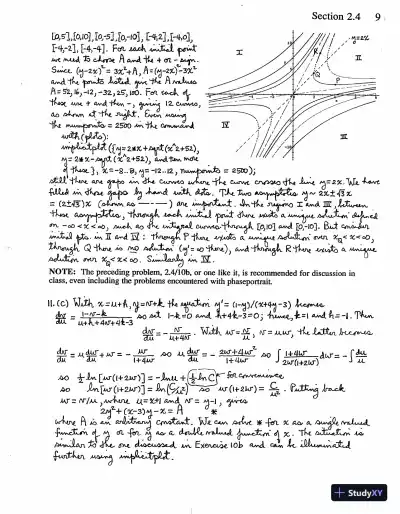 Section 2.4 9
[0,5],[0,10],[0,-5],[0,-10], [-4,2],[-4,0],
[-4,-2], [-4,-4]. For each initial point
we need to choose A and the + or - sign.
Since (y-2x)² = 3x²+A, A=(y-2x)²-3x²
and the points listed give the A values
For each of
these use + and then -, giving 12 curves,
as shown at the right. Even using
the numpoints = 2500 in the command
with(plots):
implicitplot({y=2*x+sqrt(x^2+52),
y=2*x-sqrt(x^2+52), and ten more
of these}, x=-8..8, y=-12..12, numpoints = 2500);
still there are gaps in the curves where the curve crosses the line y=2x. We have
filled in those gaps by hand with dots. The two asymptotes y~2x±√3x
= (2±√3)x (shown as ----) are important. In the regions I and III, between
these asymptotes, through each initial point there exists a unique solution defined
on -∞<x<∞, such as the integral curves through [0,10] and [0,-10]. But consider
initial pts. in II and IV: through P there exists a unique solution over x_Q<x<∞,
through Q there is no solution (y'=∞ there), and through R there exists a unique
solution over x_Q<x<∞. Similarly in IV.
NOTE: The preceding problem, 2.4/10b, or one like it, is recommended for discussion in
class, even including the problems encountered with phaseportrait.
11.(c) With x=u+h, y=v+k the equation y'=(1-y)/(x+4y-3) becomes
dv/du = (1-v-k)/(u+h+4v+4k-3) so set 1-k=0 and h+4k-3=0; hence, k=1 and h=-1. Then
dv/du = -v/(u+4v). With w=v/u, v=uw, the latter becomes
dv/du = u dw/du + w = -w/(1+4w) so u dw/du = -(2w+4w²)/(1+4w) so ∫ (1+4w)/(2w(1+2w)) dw = -∫ du/u
so ½ ln[w(1+2w)] = -ln u + ½ ln C for convenience
so ln[w(1+2w)] = ln(C/u²) so w(1+2w) = C/u². Putting back
w=v/u, where u=x+1 and v=y-1, gives
2y²+(x-3)y-x = A *
where A is an arbitrary constant. We can solve * for x as a single valued
function of y or for y as a double valued function of x. The situation is
similar to the one discussed in Exercise 10b and can be illuminated
further using implicitplot.
I
y=2x
R
Q
P
II
IV
III
+ StudyXY